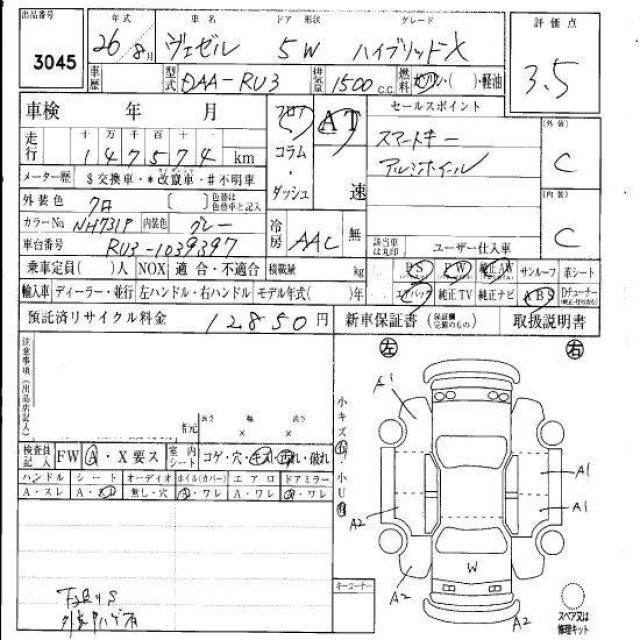 出品番号 年式 車名 ドア 形状 グレード 評価点
3045 26/8月 ヴェゼル 5W ハイブリッドX 3.5
車歴 型式 DAA-RU3 排気量 1500 C.C. 燃料 ガソリン・( )・軽油
車検 年 月 フロア AT セールスポイント [外装]
走行 十 万 千 百 十 一 コラム スマートキー C
147574 km ダッシュ 速 アルミホイール
メーター歴 $交換車・*改竄車・#不明車
外装色 クロ [ ] 色替は色替車と記入 冷房 AAC 無 [内装]
カラーNo NH731P 内装色 グレー C
車台番号 RU3-1039397 該当車は丸印 ユーザー仕入車
乗車定員( )人 NOX 適合・不適合 積載量 kg PS PW 純正AW サンルーフ 革シート
輸入車 ディーラー・並行 左ハンドル・右ハンドル モデル年式( )年 エアバック 純正TV 純正ナビ ABS Dチューナー
預託済リサイクル料金 12850円 新車保証書(保証欄完備のもの) 取扱説明書
左 右
注意事項(出品店記入)
長さ 幅 高さ
× ×
小キズ 小 小U
A1
A1
A1
A2
検査員記入 FW A・X要ス 室内シート コゲ・穴・キス・汚れ・破れ
ハンドル シート オーディオ ホイル(カバー) エアロ ドアミラー
A・スレ 無し・穴 A・ワレ A・ワレ A・ワレ
W
A2
A2
キーコーナー
スペア又は
修理キット